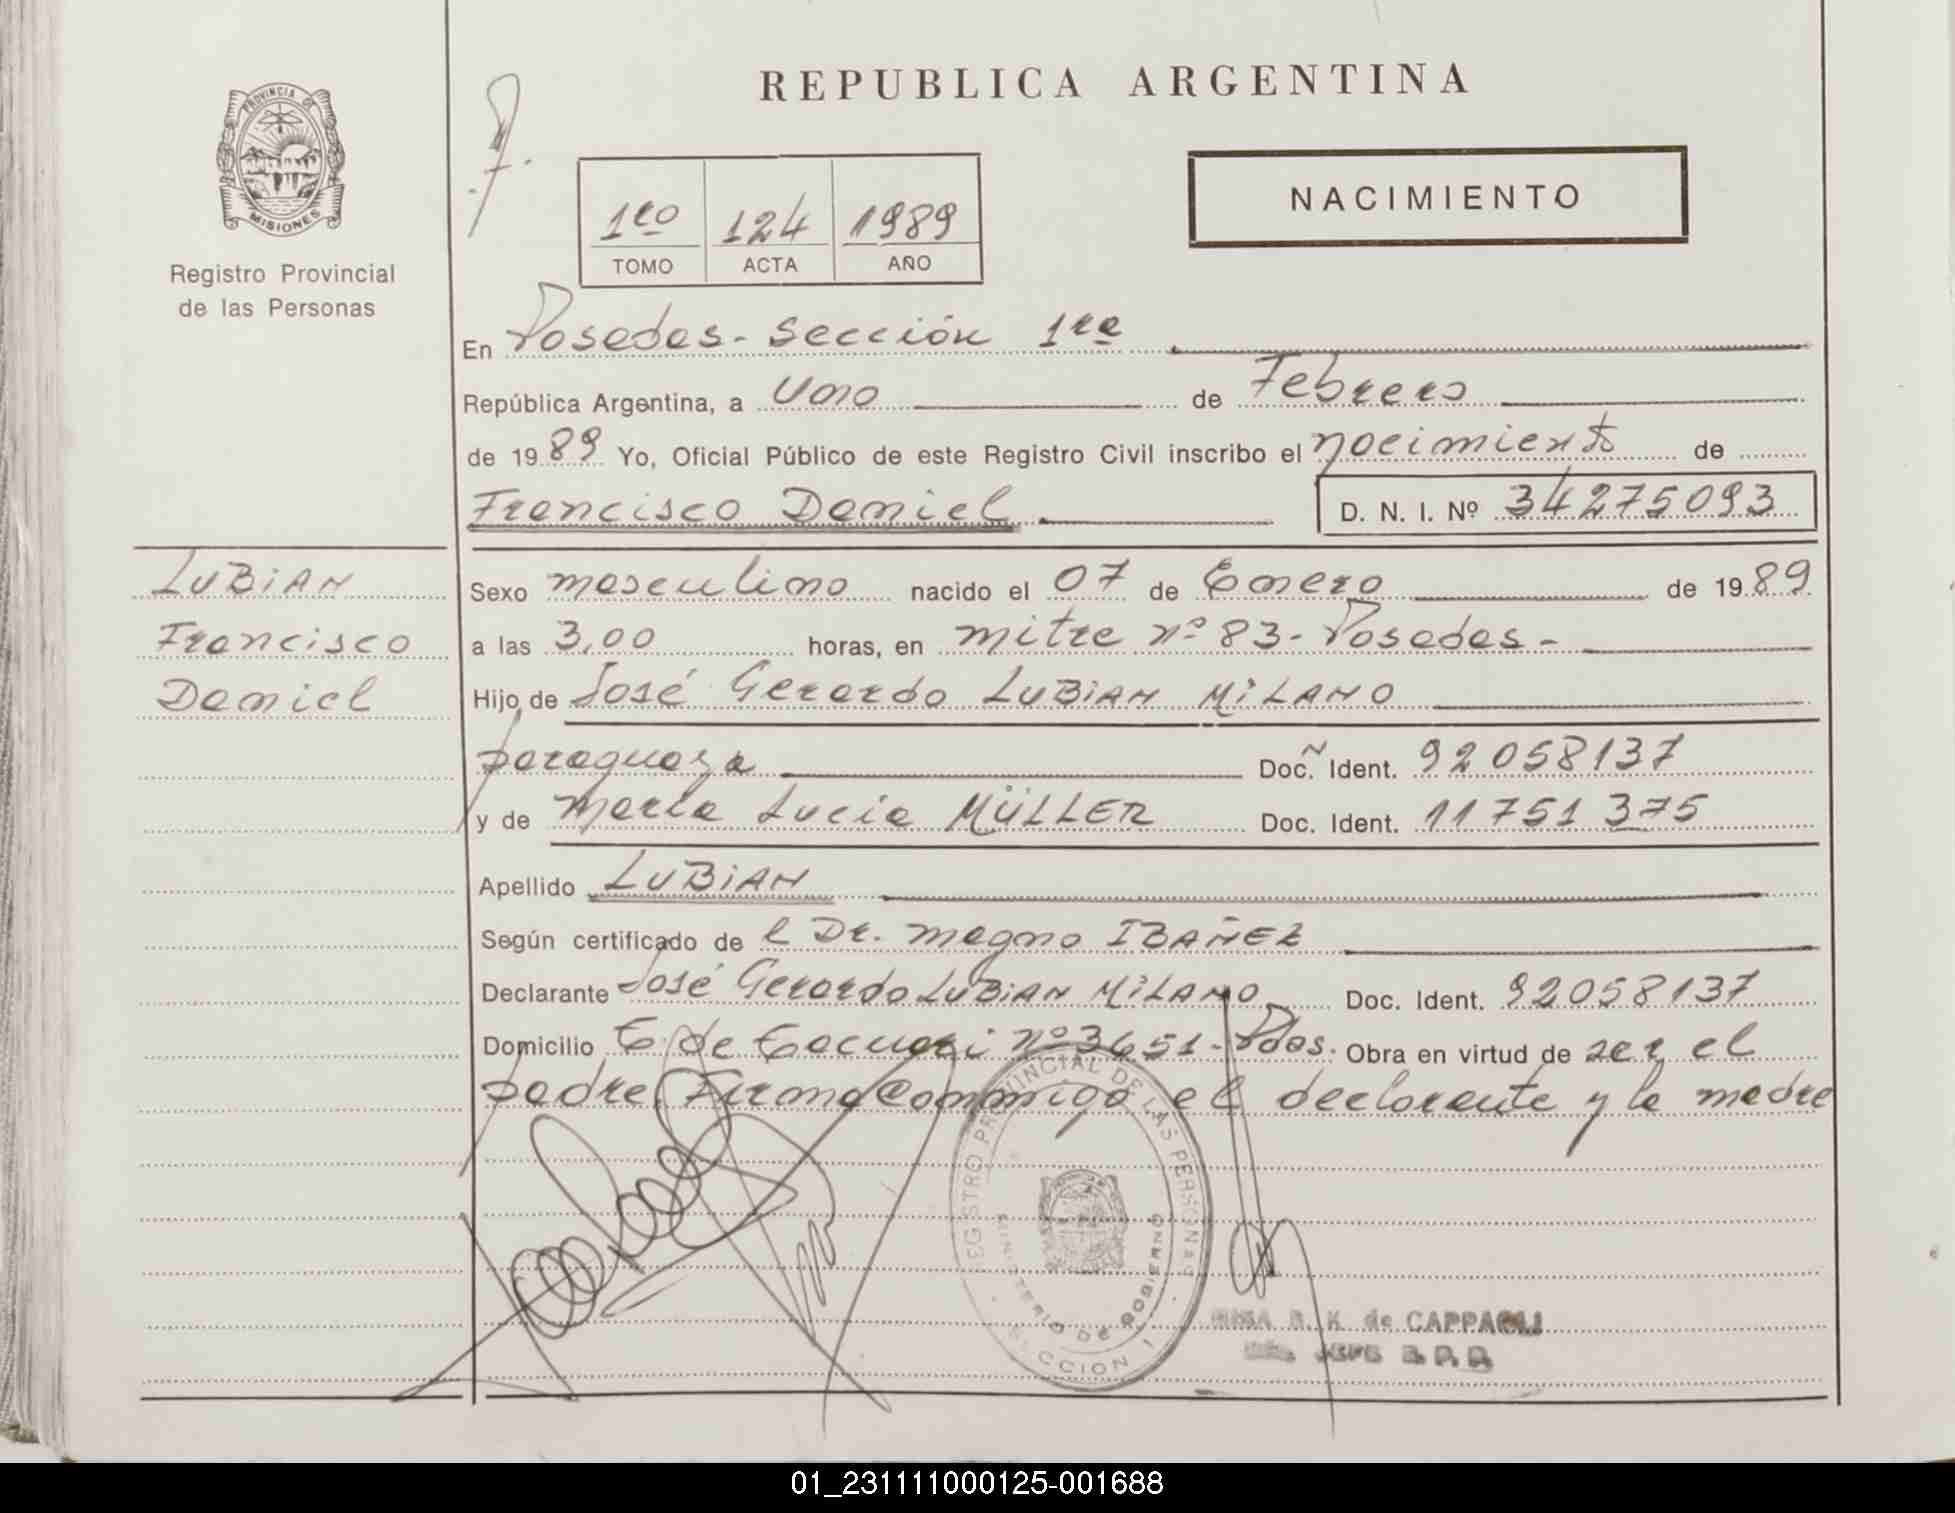 REPUBLICA ARGENTINA
PROVINCIA DE
MISIONES
Registro Provincial
de las Personas
1ro 124 1989
TOMO ACTA AÑO
NACIMIENTO
En Posadas - Sección 1ra
República Argentina, a Uno de Febrero
de 1989 Yo, Oficial Público de este Registro Civil inscribo el nacimiento de
Francisco Daniel D. N. I. Nº 34275093
LUBIAN
Francisco
Daniel
Sexo masculino nacido el 07 de Enero de 1989
a las 3,00 horas, en mitre nº 83 - Posadas -
Hijo de José Gerardo LUBIAN MILANO
paraguaya Doc. Ident. 92058137
y de María Lucía MÜLLER Doc. Ident. 11751375
Apellido LUBIAN
Según certificado de l Dr. Magno IBAÑEZ
Declarante José Gerardo LUBIAN MILANO Doc. Ident. 92058137
Domicilio nº 3651 - Pdas. Obra en virtud de ser el
padre. Firma conmigo el declarante y la madre
REGISTRO PROVINCIAL DE LAS PERSONAS
MINISTERIO DE GOBIERNO
SECCION 1
de CAPPAGLI
JEFE
01_231111000125-001688